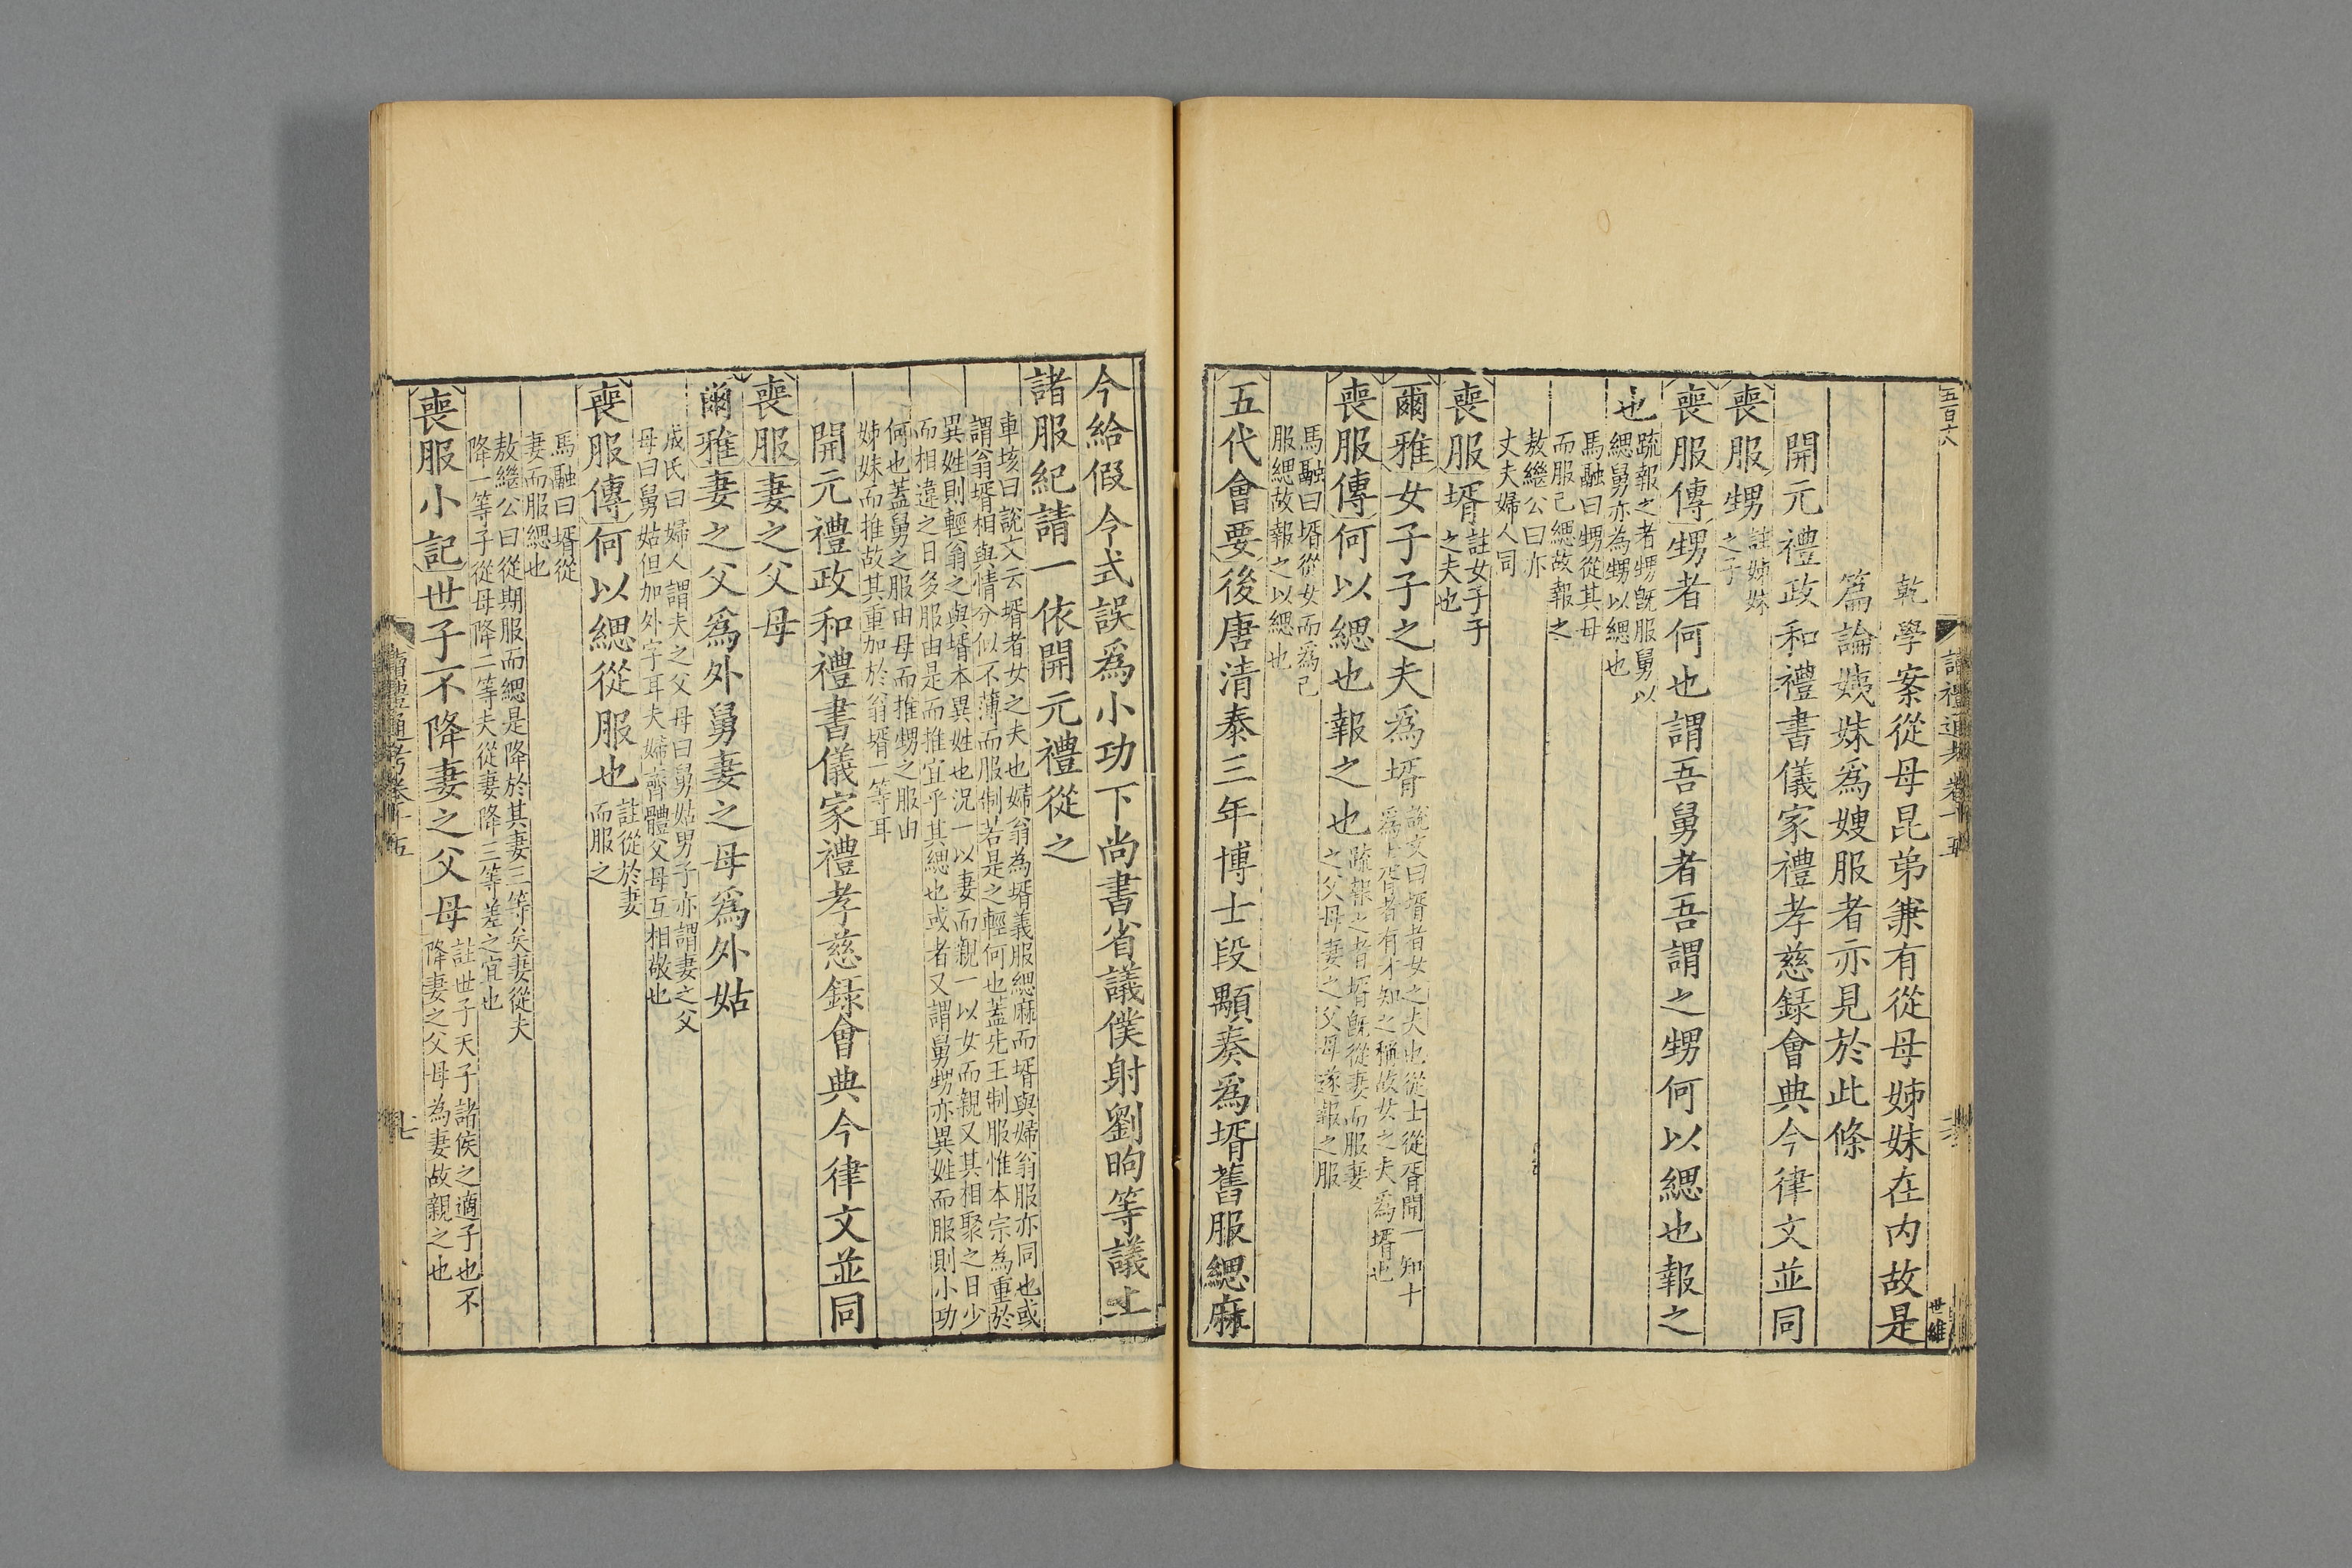 五百六八
讀禮通考卷十五
世維
乾學案從母昆弟兼有從母姊妹在内故是
篇論姨妹爲嫂服者亦見於此條
開元禮政和禮書儀家禮孝慈録會典今律文並同
喪服甥註姊妹
之子
喪服傳甥者何也謂吾舅者吾謂之甥何以緦也報之
也疏報之者甥既服舅以
緦舅亦為甥以緦也
馬融曰甥從其母
而服己緦故報之
敖繼公曰亦
丈夫婦人同
喪服壻註女子子
之夫也
爾雅女子子之夫爲壻說文曰壻者女之夫也從士從胥聞一知十
爲士胥者有才知之稱故女之夫爲壻也
喪服傳何以緦也報之也疏報之者壻既從妻而服妻
之父母妻之父母遂報之服
馬融曰壻從女而爲己
服緦故報之以緦也
五代會要後唐清泰三年博士段顒奏爲壻舊服緦麻
今給假令式誤爲小功下尚書省議僕射劉昫等議
諸服紀請一依開元禮從之
車垓曰說文云壻者女之夫也婦翁為壻義服緦麻而壻與婦翁服亦同也或
謂翁壻相與情分似不薄而服制若是之輕何也蓋先王制服惟本宗為重於
異姓則輕翁之與壻本異姓也況一以妻而親一以女而親又其相聚之日少
而相違之日多服由是而推宜乎其緦也或者又謂舅甥亦異姓而服則小功
何也蓋舅之服由母而推甥之服由
姊妹而推故其重加於翁壻一等耳
開元禮政和禮書儀家禮孝慈録會典今律文並同
喪服妻之父母
爾雅妻之父爲外舅妻之母爲外姑
成氏曰婦人謂夫之父母曰舅姑男子亦謂妻之父
母曰舅姑但加外字耳夫婦齊體父母互相敬也
喪服傳何以緦從服也註從於妻
而服之
馬融曰壻從
妻而服緦也
敖繼公曰從期服而緦是降於其妻三等矣妻從夫
降一等子從母降二等夫從妻降三等差之宜也
喪服小記世子不降妻之父母註世子天子諸侯之適子也不
降妻之父母為妻故親之也
讀禮通考卷十五
七